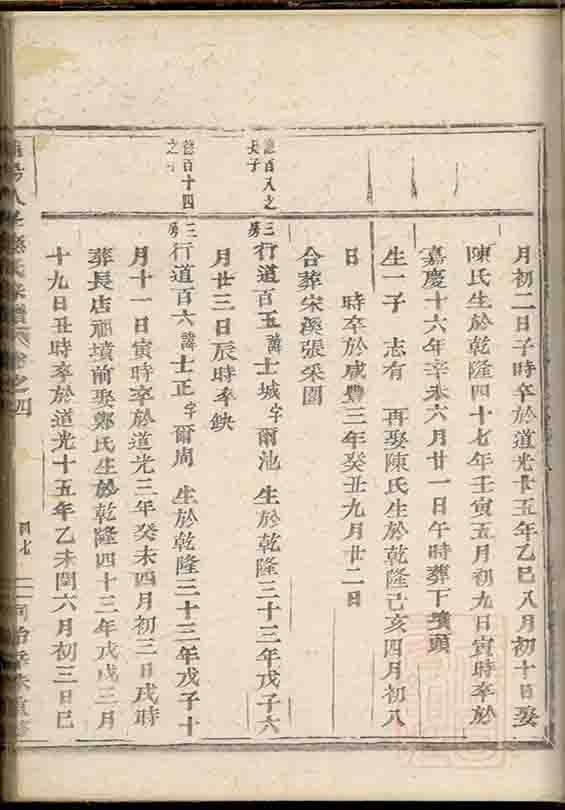 月初二日子時卒於道光廿五年乙巳八月初十日娶
陳氏生於乾隆四十七年壬寅五月初九日寅時卒於
嘉慶十六年辛未六月廿一日午時葬下墳頭
生一子 志有 再娶陳氏生於乾隆己亥四月初八
日 時卒於咸豐三年癸丑九月廿二日
合葬宋溪張采園
德百八之
長子
三房
行道百五諱士城字爾池 生於乾隆三十三年戊子六
月廿三日辰時卒缺
德百十四
之子
三房
行道百六諱士正字爾周 生於乾隆三十三年戊子十
月十一日寅時卒於道光三年癸未四月初三日戌時
葬長店祖墳前娶鄭氏生於乾隆四十三年戊戌三月
十九日丑時卒於道光十五年乙未閏六月初三日巳
氏宗譜 卷之四 同治辛未重修